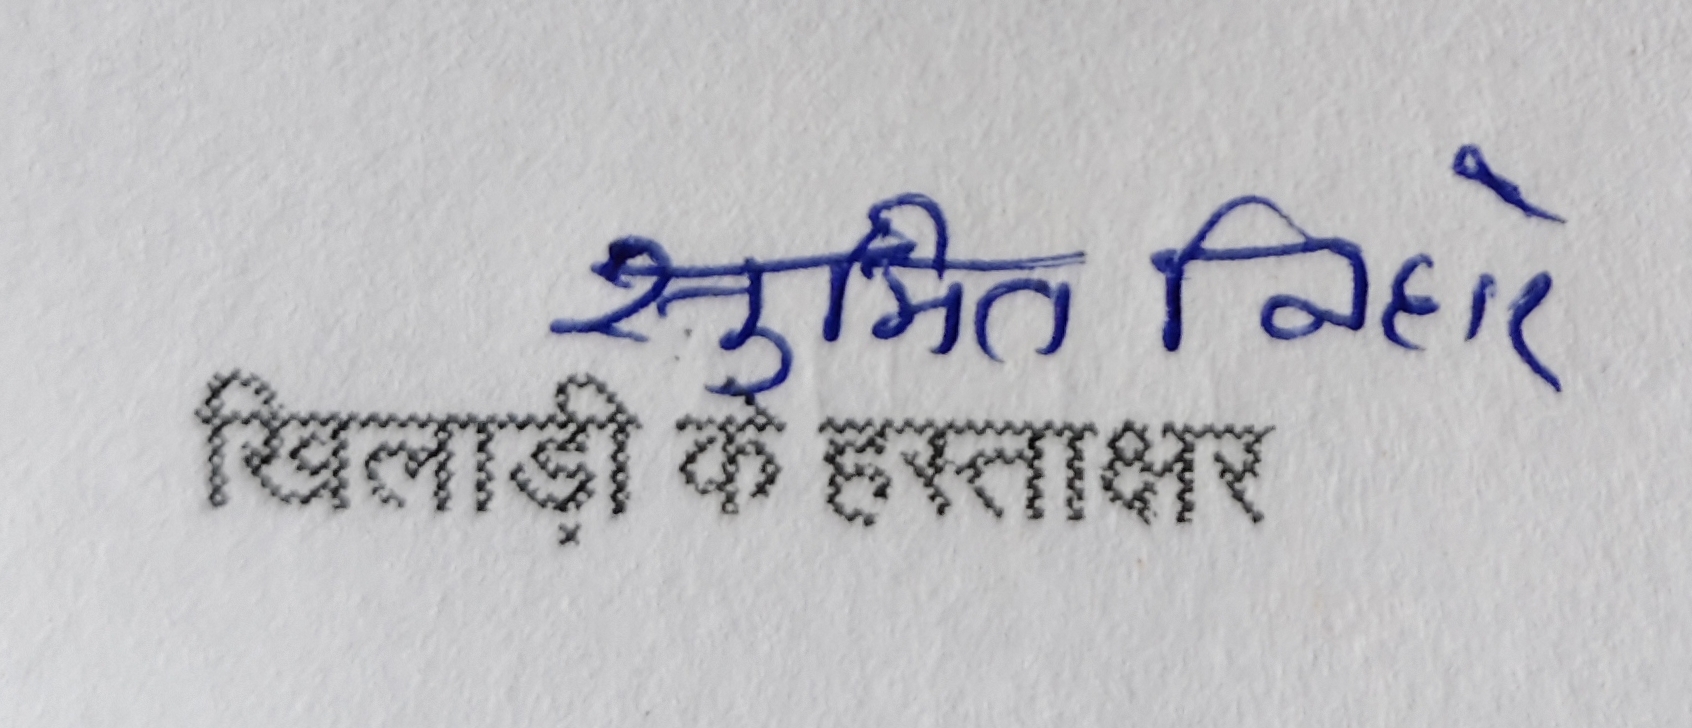 सुमित विहारे
खिलाड़ी के हस्ताक्षर